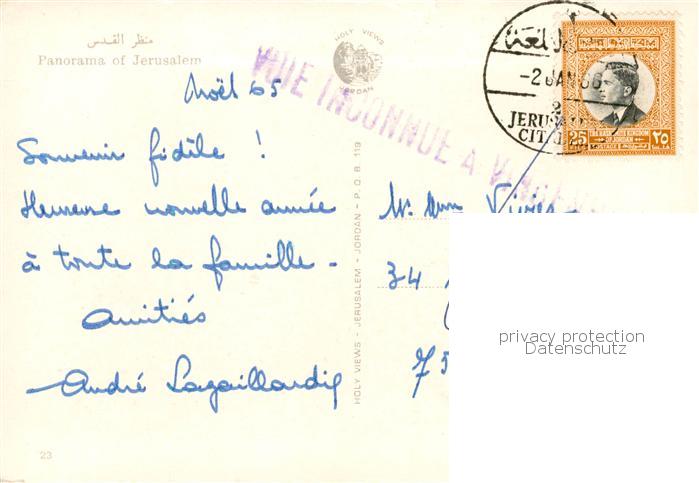 منظر القدس
Panorama of Jerusalem
HOLY VIEWS
JORDAN
-2 JAN 66
2
25
THE HASHEMITE KINGDOM
OF JORDAN
POSTAGE
٢٥
RUE INCONNUE A
Noël 65
Souvenir fidèle !
Heureuse nouvelle année
à toute la famille -
Amitiés
André Lagaillardie
HOLY VIEWS - JERUSALEM - JORDAN - P. O. B. 119
34
75
privacy protection
Datenschutz
23